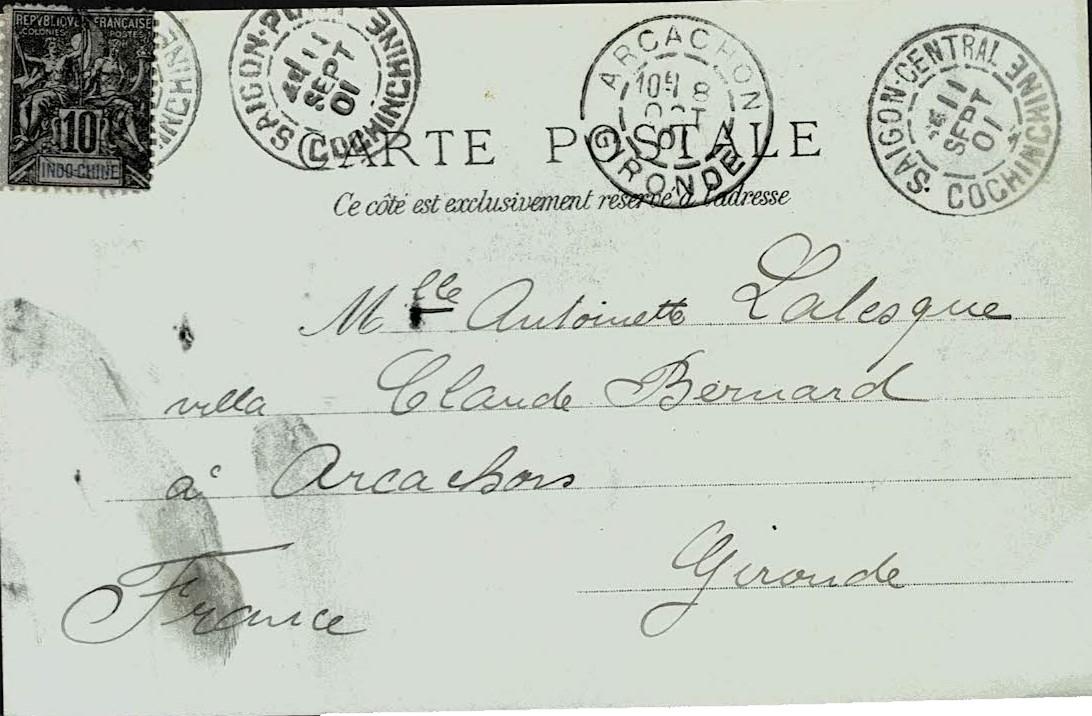 REPVBLIQVE FRANÇAISE
COLONIES POSTES
10
INDO-CHINE
CHINE
SAIGON-PORT COCHINCHINE
11
SEPT
01
ARCACHON GIRONDE
8
OCT
01
SAIGON-CENTRAL COCHINCHINE
11
SEPT
01
CARTE POSTALE
Ce côté est exclusivement réservé à l'adresse
Mlle Antoinette Lalesque
villa Claude Bernard
à Arcachon
Gironde
France